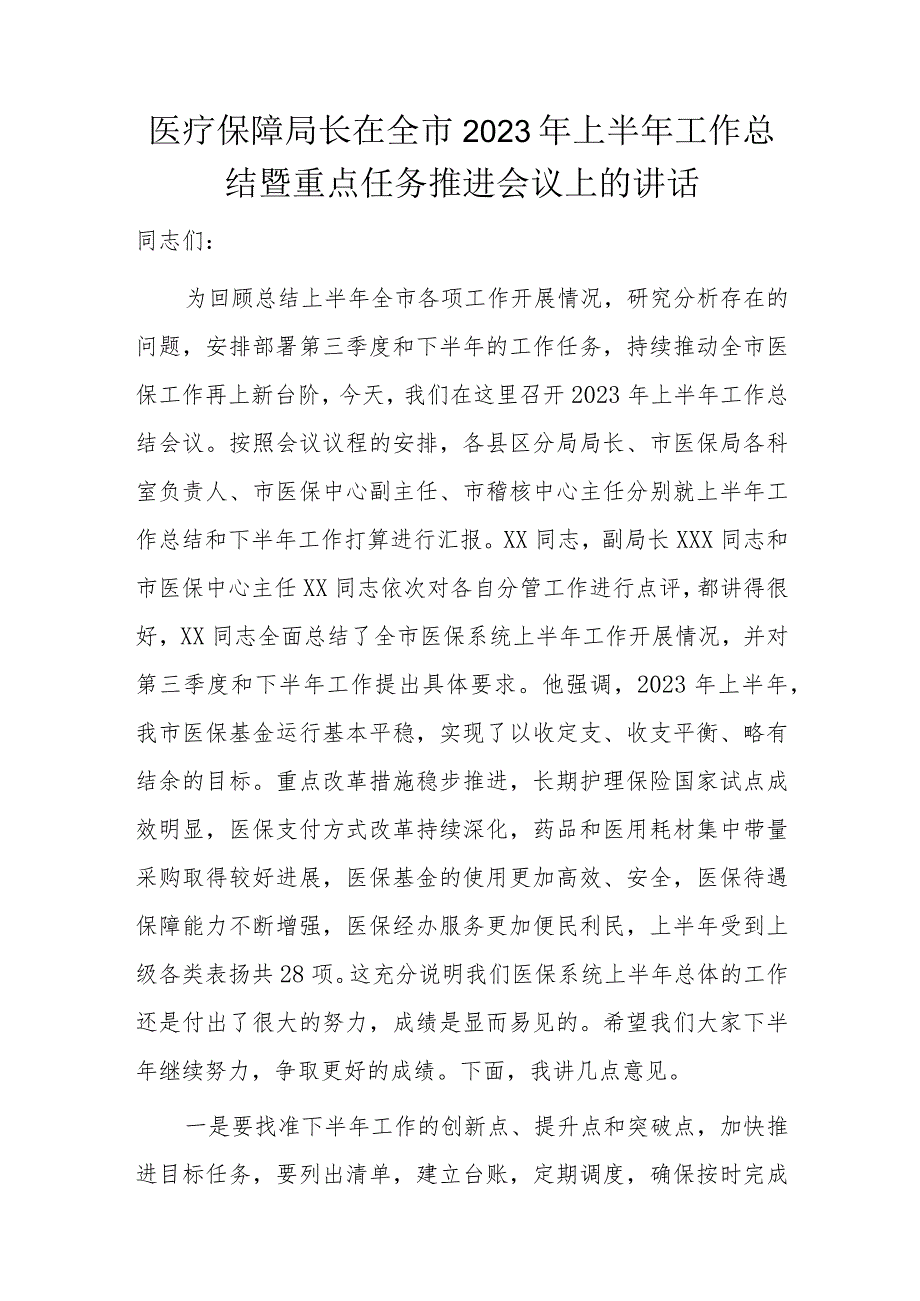 医疗保障局长在全市 2023 年上半年工作总
结暨重点任务推进会议上的讲话
同志们：
为回顾总结上半年全市各项工作开展情况，研究分析存在的
问题，安排部署第三季度和下半年的工作任务，持续推动全市医
保工作再上新台阶，今天，我们在这里召开 2023 年上半年工作总
结会议。按照会议议程的安排，各县区分局局长、市医保局各科
室负责人、市医保中心副主任、市稽核中心主任分别就上半年工
作总结和下半年工作打算进行汇报。XX 同志，副局长 XXX 同志和
市医保中心主任 XX 同志依次对各自分管工作进行点评，都讲得很
好，XX 同志全面总结了全市医保系统上半年工作开展情况，并对
第三季度和下半年工作提出具体要求。他强调，2023 年上半年，
我市医保基金运行基本平稳，实现了以收定支、收支平衡、略有
结余的目标。重点改革措施稳步推进，长期护理保险国家试点成
效明显，医保支付方式改革持续深化，药品和医用耗材集中带量
采购取得较好进展，医保基金的使用更加高效、安全，医保待遇
保障能力不断增强，医保经办服务更加便民利民，上半年受到上
级各类表扬共 28 项。这充分说明我们医保系统上半年总体的工作
还是付出了很大的努力，成绩是显而易见的。希望我们大家下半
年继续努力，争取更好的成绩。下面，我讲几点意见。
一是要找准下半年工作的创新点、提升点和突破点，加快推
进目标任务，要列出清单，建立台账，定期调度，确保按时完成